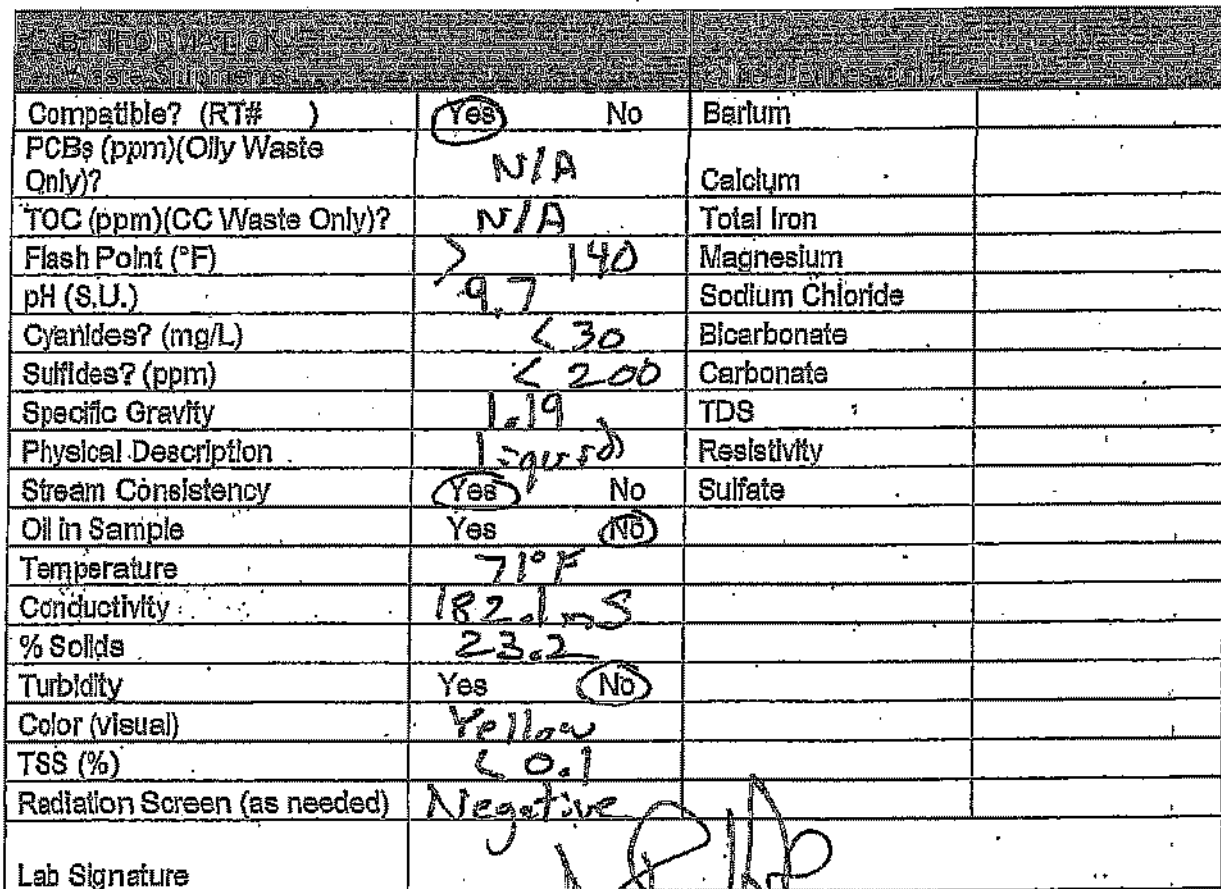 LAB INFORMATION
Waste Shipments Oilfield Brines Only
Compatible? (RT# ) Yes No Barium
PCBs (ppm)(Oily Waste
Only)? N/A Calcium
TOC (ppm)(CC Waste Only)? N/A Total Iron
Flash Point (°F) > 140 Magnesium
pH (S.U.) 9.7 Sodium Chloride
Cyanides? (mg/L) <30 Bicarbonate
Sulfides? (ppm) <200 Carbonate
Specific Gravity 1.19 TDS
Physical Description liquid Resistivity
Stream Consistency Yes No Sulfate
Oil in Sample Yes No
Temperature 71°F
Conductivity 182.1 mS
% Solids 23.2
Turbidity Yes No
Color (visual) Yellow
TSS (%) < 0.1
Radiation Screen (as needed) Negative
Lab Signature